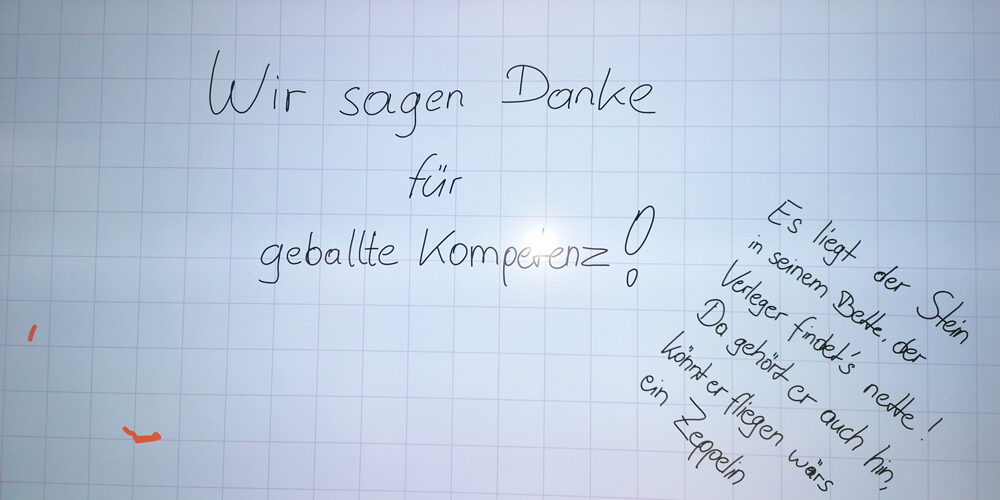 Wir sagen Danke
für
geballte Kompetenz!
Es liegt der Stein
in seinem Bette, der
Verleger findet's nette!
Da gehört er auch hin,
könnt er fliegen wärs
ein Zeppelin